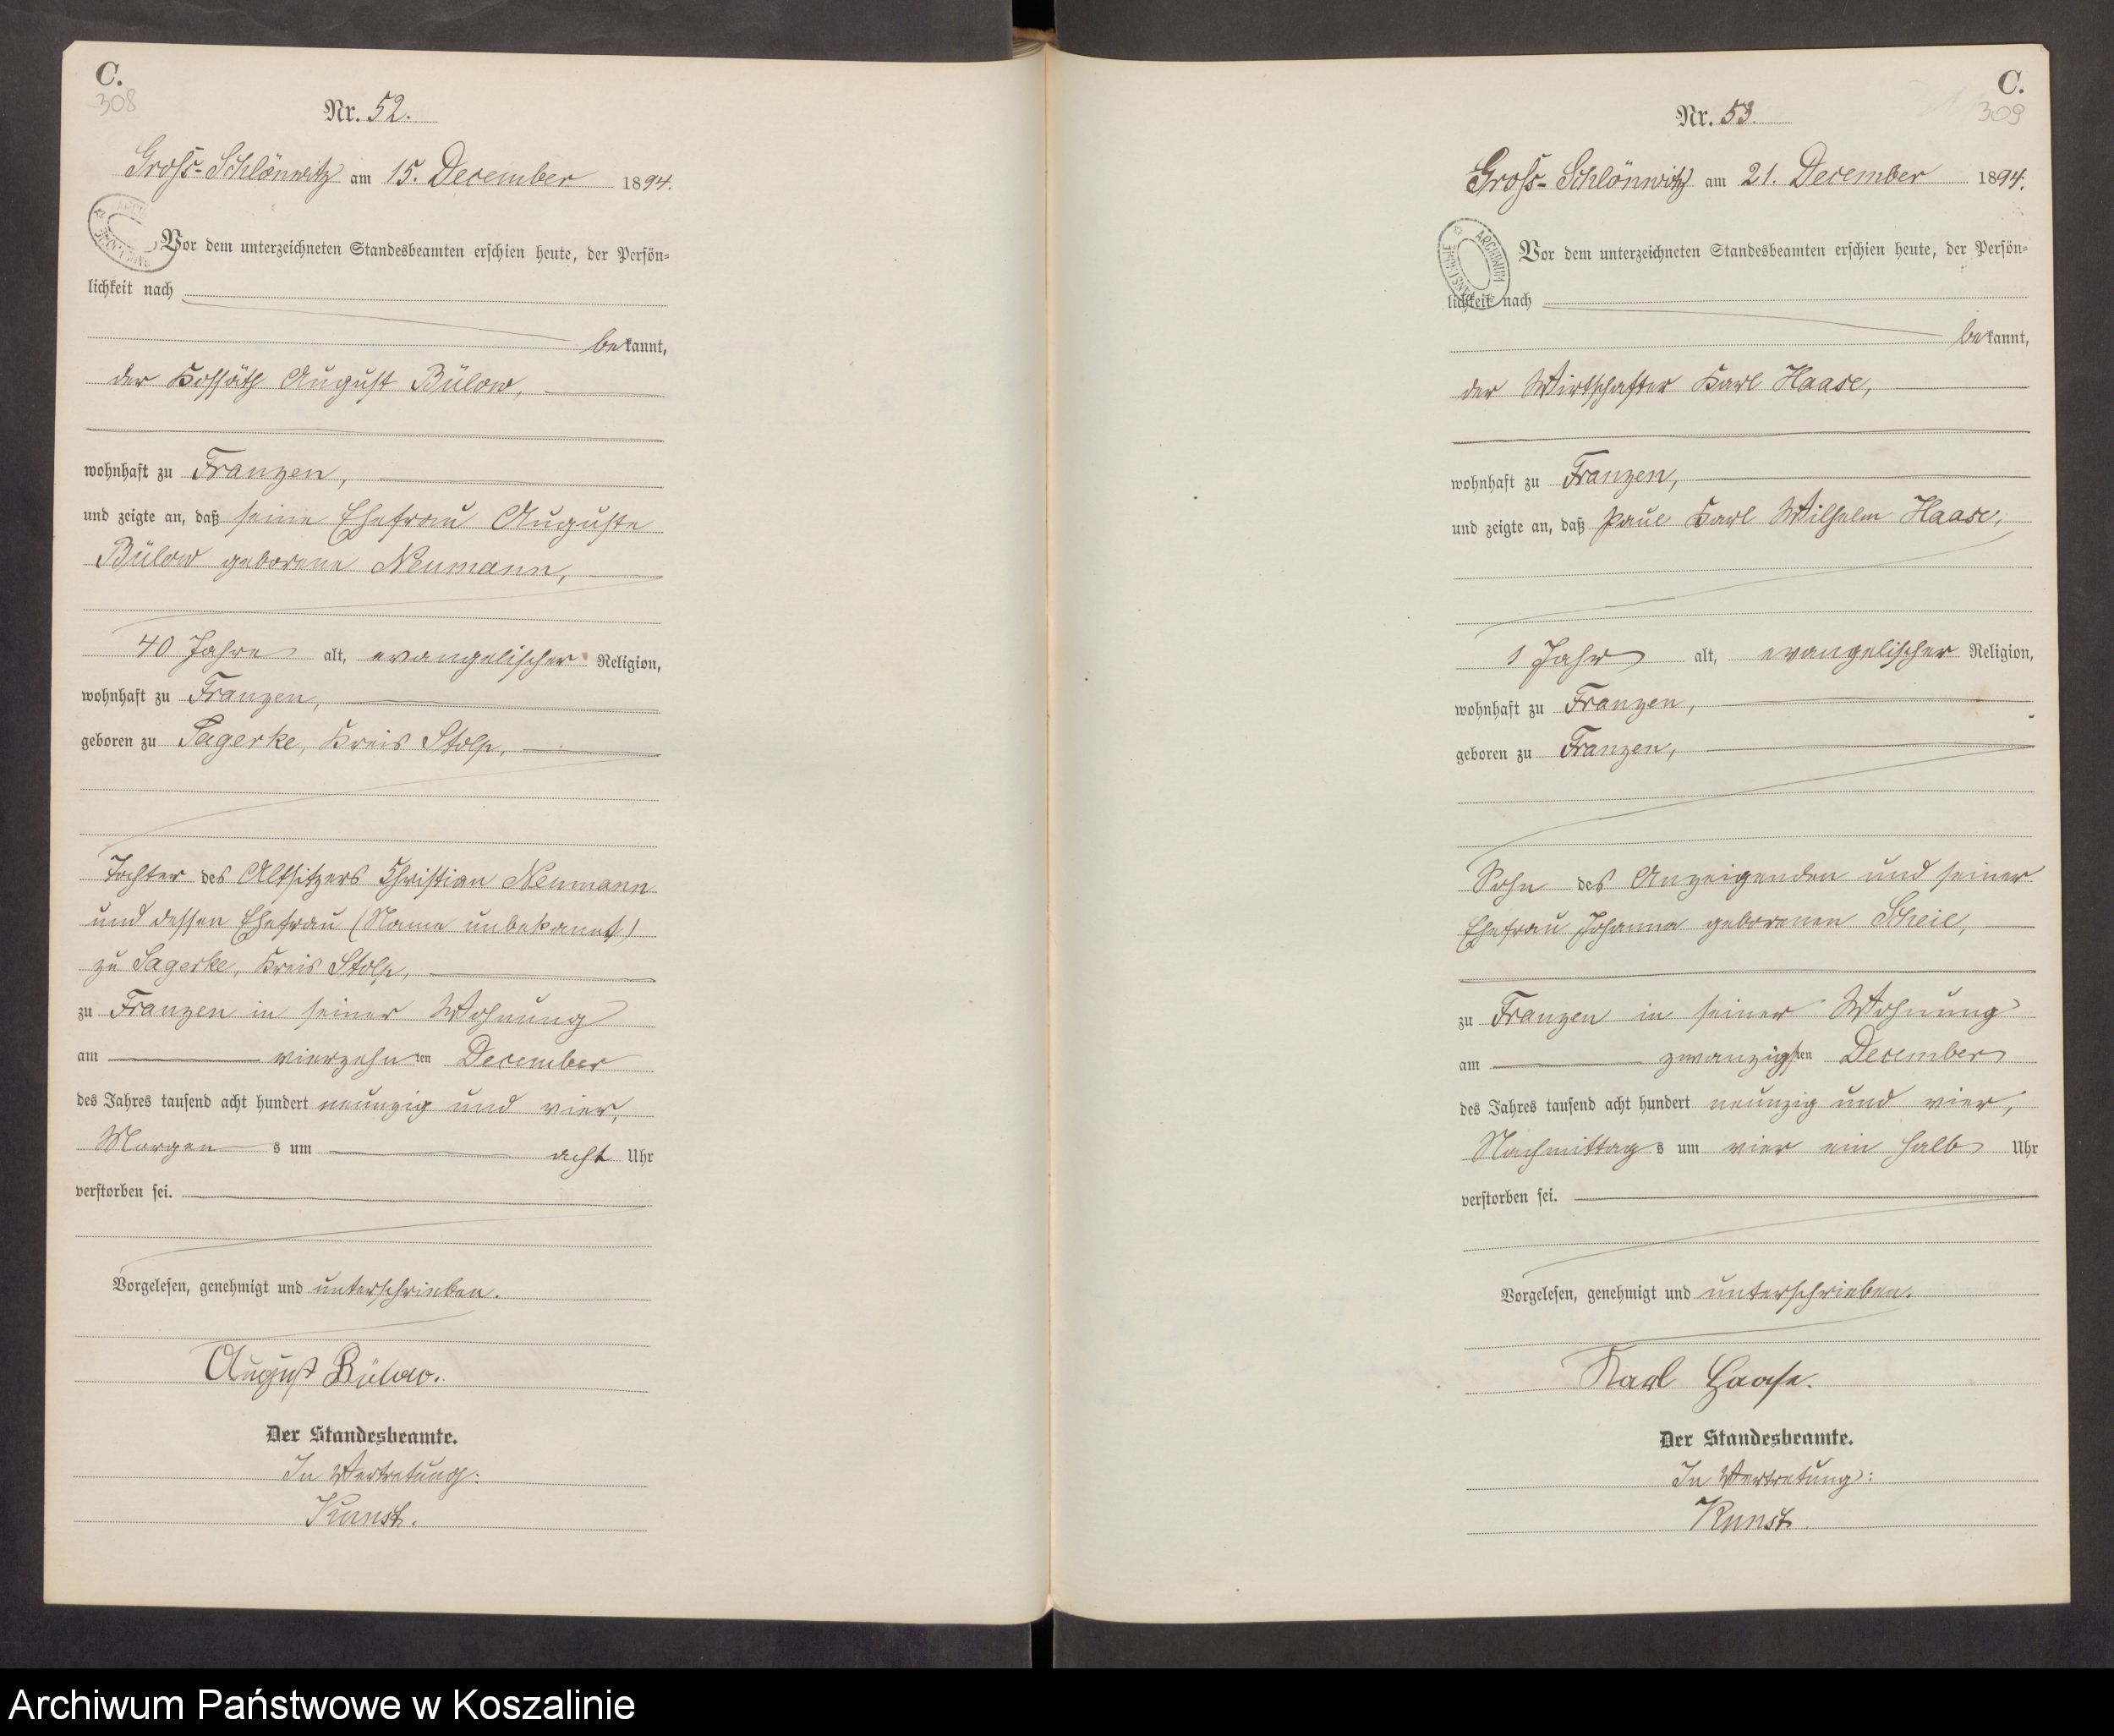 C.
308
Nr. 52.
Gross-Schlönwitz am 15. December 1894.
Vor dem unterzeichneten Standesbeamten erschien heute, der Persön=
lichkeit nach
bekannt,
der Kossäth August Bülow,
wohnhaft zu Franzen,
und zeigte an, daß seine Ehefrau Auguste
Bülow geborene Neumann,
40 Jahre alt, evangelischer Religion,
wohnhaft zu Franzen,
geboren zu Sagerke, Kreis Stolp,
Tochter des Altsitzers Christian Neumann
und dessen Ehefrau (Name unbekannt)
zu Sagerke, Kreis Stolp,
zu Franzen in seiner Wohnung
am vierzehnten December
des Jahres tausend acht hundert neunzig und vier,
Morgens um acht Uhr
verstorben sei.
Vorgelesen, genehmigt und unterschrieben.
August Bülow.
Der Standesbeamte.
In Vertretung:
Kunst.
C.
309
Nr. 53.
Gross-Schlönwitz am 21. December 1894.
ARCHIWUM
Vor dem unterzeichneten Standesbeamten erschien heute, der Persön=
lichkeit nach
bekannt,
der Wirtschafter Karl Haase,
wohnhaft zu Franzen,
und zeigte an, daß Paul Karl Wilhelm Haase,
1 Jahr alt, evangelischer Religion,
wohnhaft zu Franzen,
geboren zu Franzen,
Sohn des Anzeigenden und seiner
Ehefrau Johanna geborenen Scheil,
zu Franzen in seiner Wohnung
am zwanzigsten December
des Jahres tausend acht hundert neunzig und vier,
Nachmittags um vier ein halb Uhr
verstorben sei.
Vorgelesen, genehmigt und unterschrieben.
Karl Haase.
Der Standesbeamte.
In Vertretung:
Kunst.
Archiwum Państwowe w Koszalinie